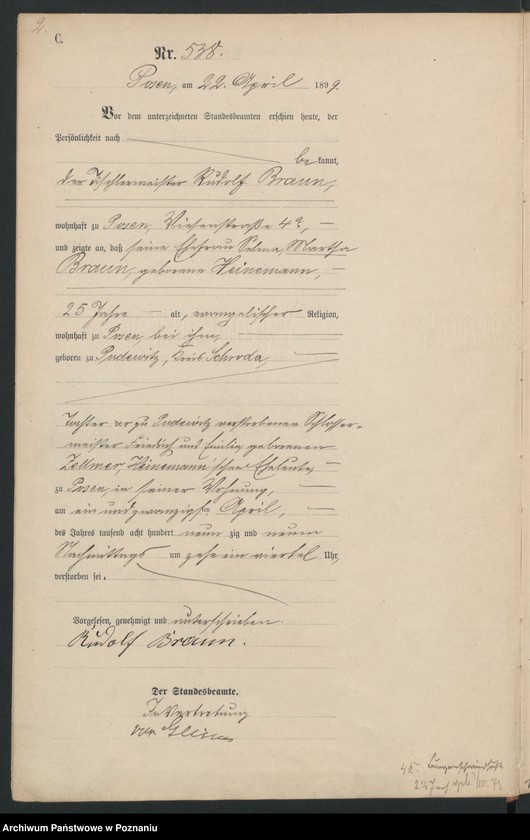 2.
C.
Nr. 538.
Posen, am 22. April 1899.
Vor dem unterzeichneten Standesbeamten erschien heute, der
Persönlichkeit nach
bekannt,
der Tischlermeister Rudolf Braun,
wohnhaft zu Posen, Wiesenstraße 4a,
und zeigte an, daß seine Ehefrau Selma, Martha
Braun, geborene Heinemann,
25 Jahre alt, evangelischer Religion,
wohnhaft zu Posen, bei ihm,
geboren zu Pudewitz, Kreis Schroda,
Tochter der zu Pudewitz verstorbenen Schlosser-
meister Friedrich und Emilie geborenen
Zellmer, Heinemann'schen Eheleute,
zu Posen, in seiner Wohnung,
am ein und zwanzigsten April,
des Jahres tausend acht hundert neunzig und neun
Nachmittags um zehn ein viertel Uhr,
verstorben sei.
Vorgelesen, genehmigt und unterschrieben.
Rudolf Braun.
Der Standesbeamte.
In Vertretung
Lungenschwindsucht
Archiwum Państwowe w Poznaniu